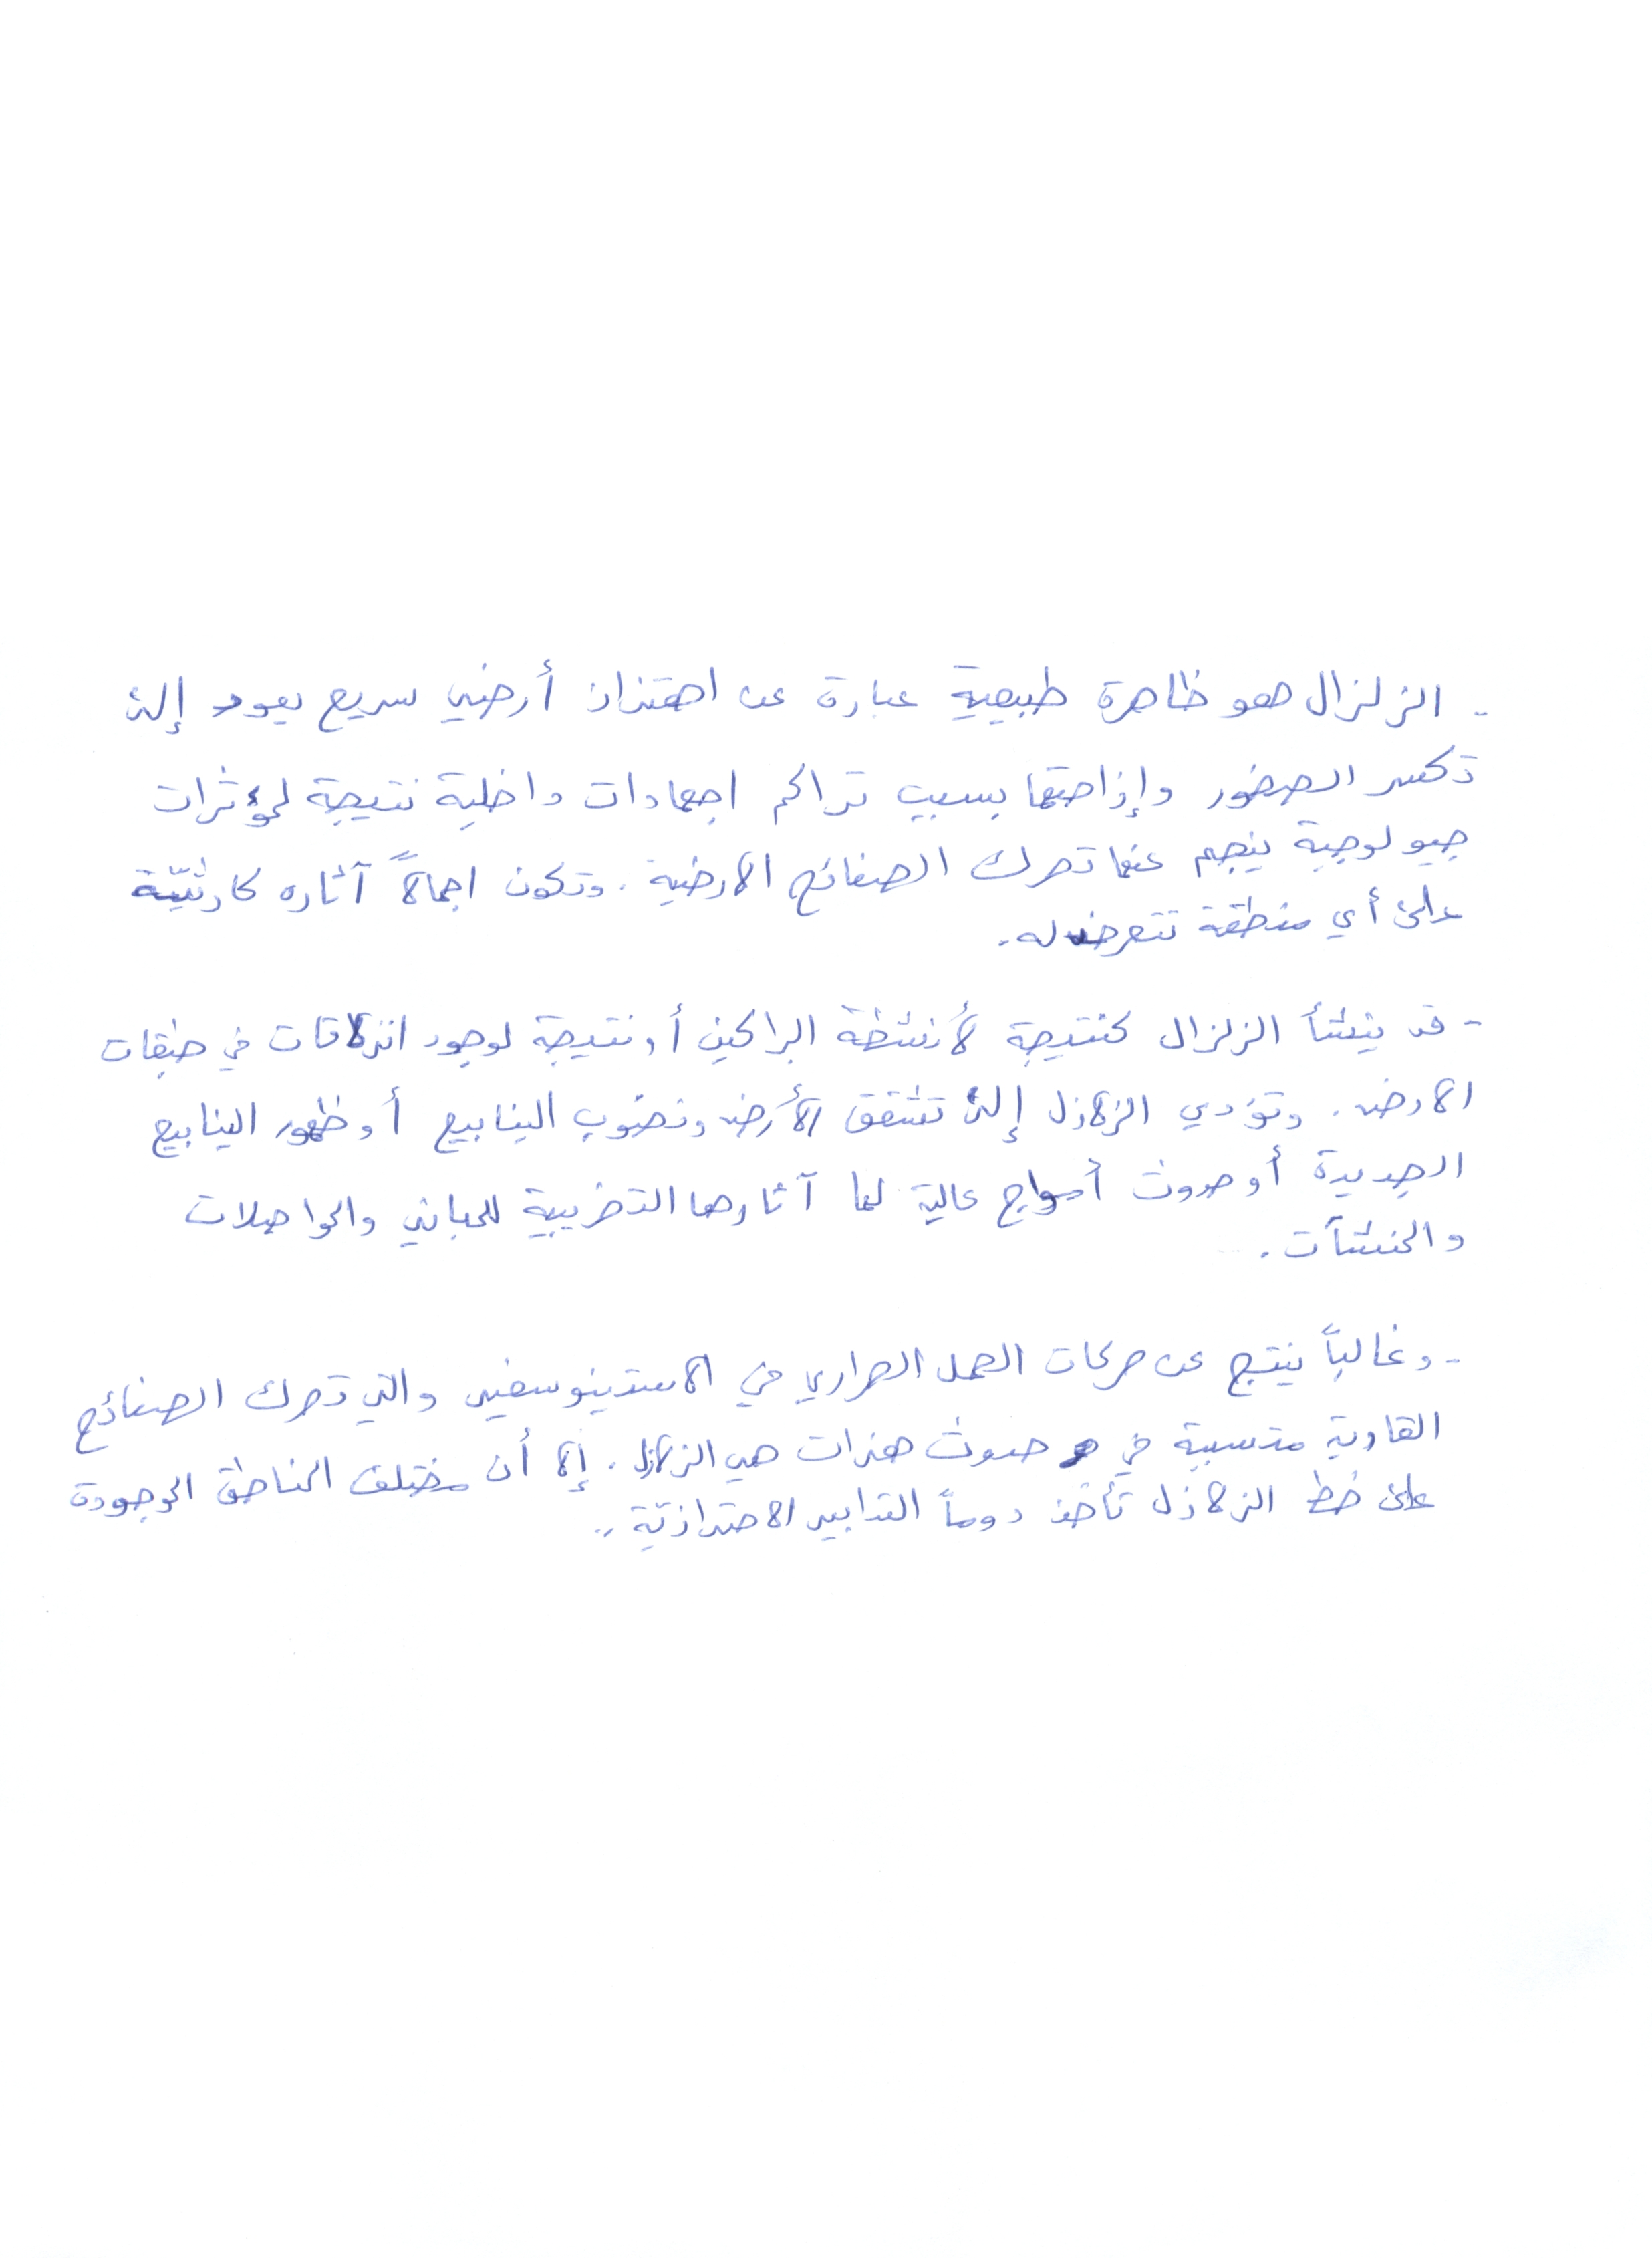 - الزلزال هو ظاهرة طبيعية عبارة عن اهتزاز أرضي سريع يعود إلى
تكسر الصخور وإزاحتها بسبب تراكم اجهادات داخلية نتيجة لمؤثرات
جيولوجية ينجم عنها تحرك الصفائح الارضية. وتكون اجمالاً آثاره كارثيّة
على أي منطقة تتعرض له.
- قد ينشأ الزلزال كنتيجة لأنشطة البراكين أو نتيجة لوجود انزلاقات في طبقات
الارض. وتؤدي الزلازل إلى تشقق الأرض ونضوب الينابيع أو ظهور الينابيع
الجديدة أو حدوث أمواج عالية لها آثارها التخريبية للمباني والمواصلات
والمنشآت.
- وغالباً ينتج عن حركات الحمل الحراري في الاستينوسفير والتي تحرك الصفائح
القارية متسببة في حدوث هزات هي الزلازل. إلا أن مختلف المناطق الموجودة
على خط الزلازل تأخذ دوماً التدابير الاحترازيّة ..